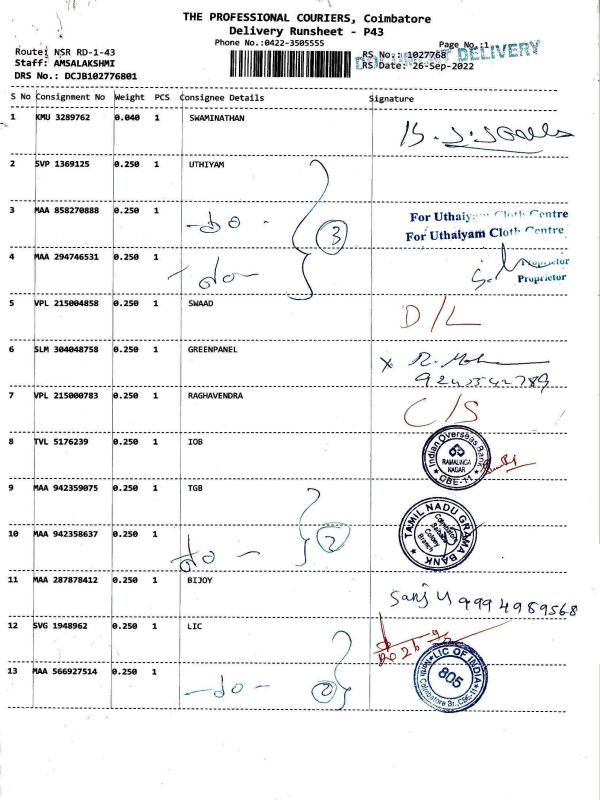 THE PROFESSIONAL COURIERS, Coimbatore
Delivery Runsheet - P43
Phone No.:0422-3505555
Page No.:1
Route: NSR RD-1-43
RS No.: 1027768
DELIVERY
Staff: AMSALAKSHMI
RS Date: 26-Sep-2022
DRS No.: DCJB102776801
S No Consignment No Weight PCS Consignee Details Signature
1 KMU 3289762 0.040 1 SWAMINATHAN
2 SVP 1369125 0.250 1 UTHIYAM
3 MAA 858270888 0.250 1 -do- 3
For Uthaiyam Cloth Centre
For Uthaiyam Cloth Centre
4 MAA 294746531 0.250 1 -do-
Proprietor
Proprietor
5 VPL 215004858 0.250 1 SWAAD D/L
6 SLM 304048758 0.250 1 GREENPANEL
7 VPL 215000783 0.250 1 RAGHAVENDRA C/S
8 TVL 5176239 0.250 1 IOB
Indian Overseas Bank
RAMALINGA
NAGAR
CBE-11
9 MAA 942359075 0.250 1 TGB
TAMIL NADU GRAMA BANK
Coimbatore
Saibaba
Colony
Branch
10 MAA 942358637 0.250 1 -do- 2
11 MAA 287878412 0.250 1 BIJOY
Sanju 9994989568
12 SVG 1948962 0.250 1 LIC
13 MAA 566927514 0.250 1 -do- 2
LIC OF INDIA
805